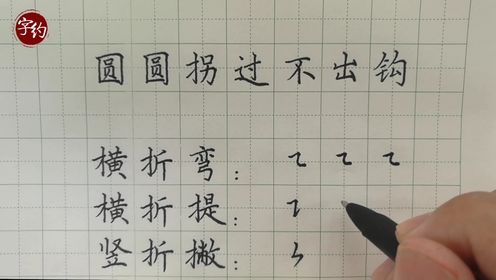 字约
圆圆拐过不出钩
横折弯：㇍ ㇍ ㇍
横折提：㇊
竖折撇：ㄣ